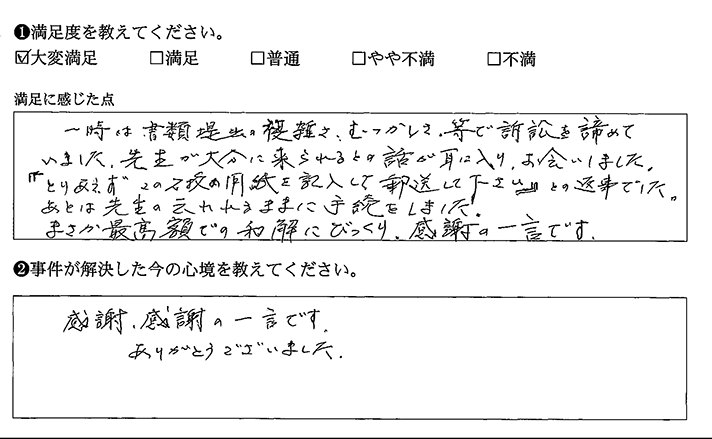 ❶満足度を教えてください。
☑大変満足 □満足 □普通 □やや不満 □不満
満足に感じた点
一時は書類提出の複雑さ、むつかしさ、等で訴訟を諦めて
いました。先生が大分に来られるとの話が耳に入り、お会いしました。
『とりあえず この2枚の用紙を記入して郵送して下さい』との返事でした。
あとは先生の云われるままに手続をしました。
まさか最高額での和解にびっくり、感謝の一言です。
❷事件が解決した今の心境を教えてください。
感謝、感謝の一言です。
ありがとうございました。